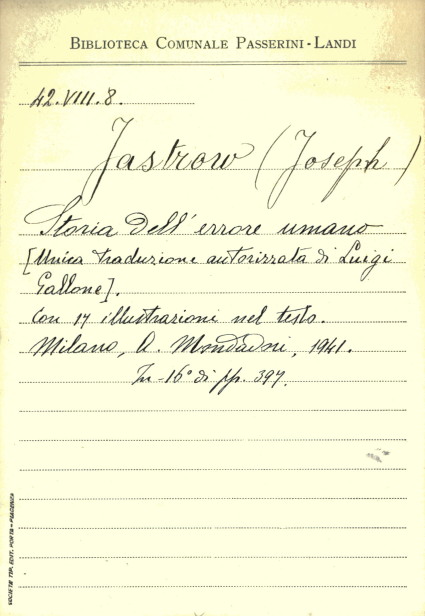 BIBLIOTECA COMUNALE PASSERINI-LANDI
42.VIII.8.
Jastrow (Joseph)
Storia dell'errore umano
[Unica traduzione autorizzata di Luigi
Gallone].
Con 17 illustrazioni nel testo.
Milano, A. Mondadori, 1941.
In-16° di pp. 397.
SOCIETÀ TIP. EDIT. PORTA - PIACENZA